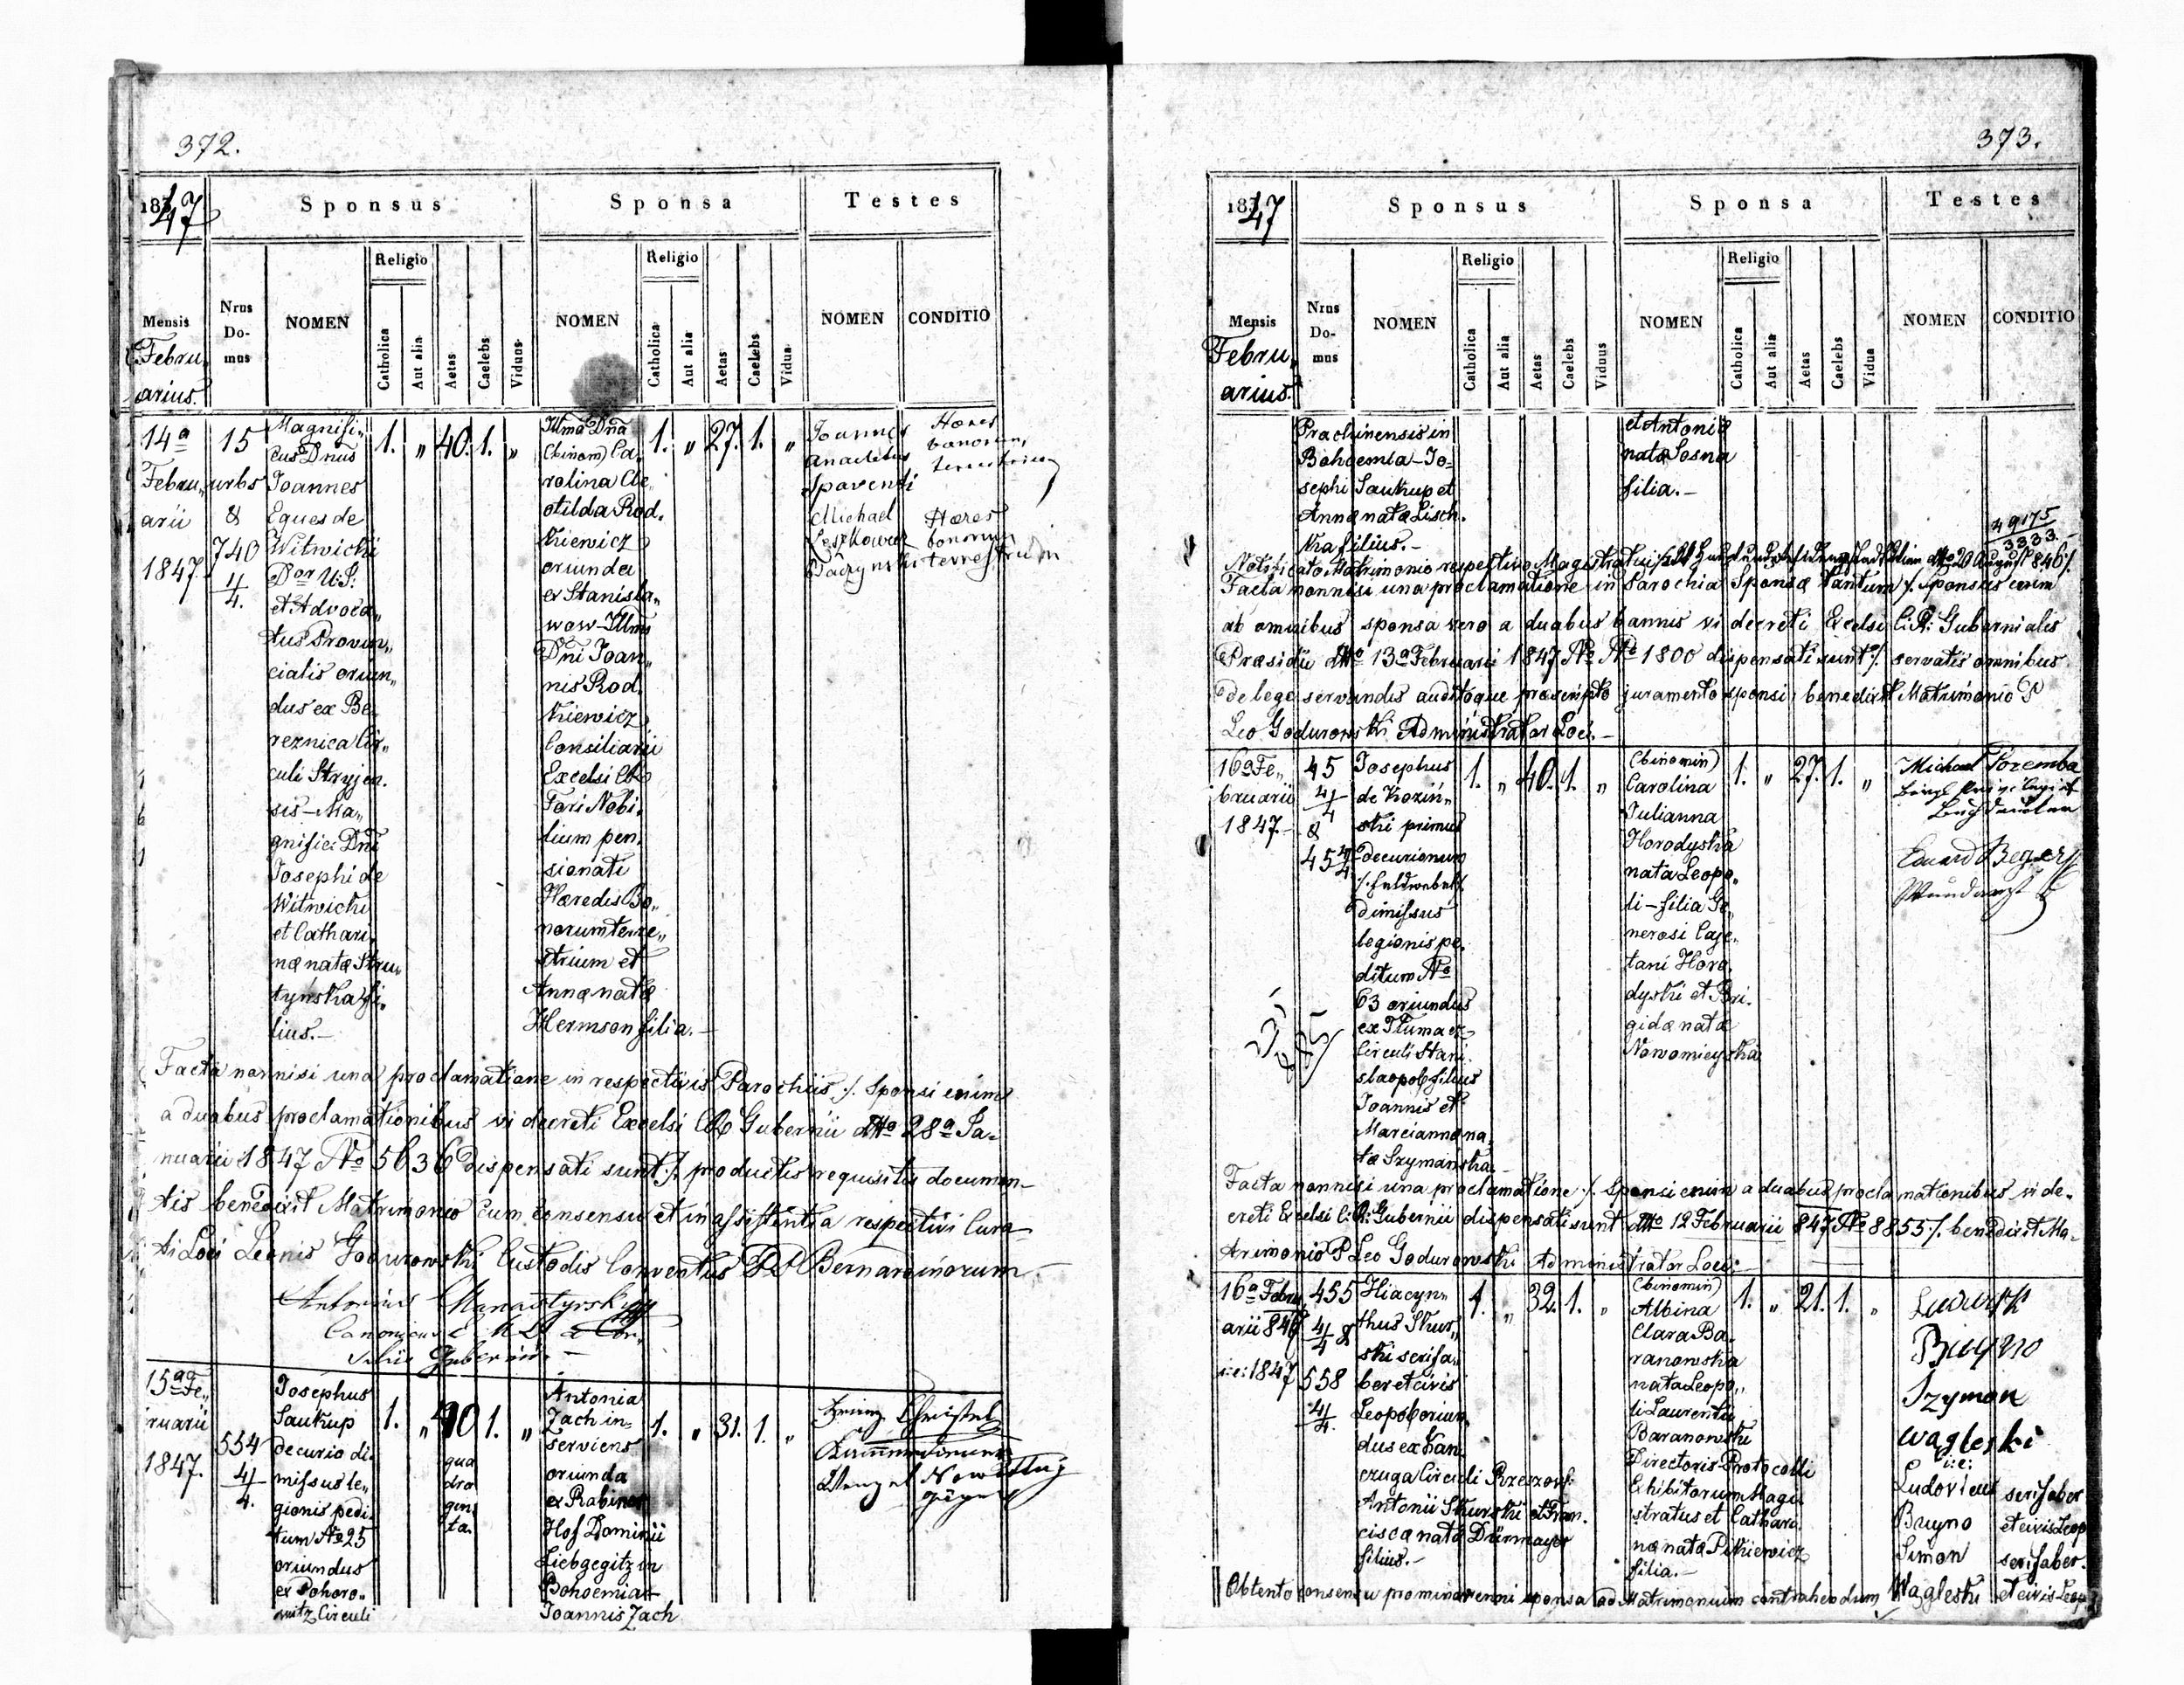 372.
1847
Sponsus
Sponsa
Testes
Mensis
Februarius
Nrus Domus
NOMEN
Religio
Catholica
Aut alia
Aetas
Caelebs
Viduus
NOMEN
Religio
Catholica
Aut alia
Aetas
Caelebs
Vidua
NOMEN
CONDITIO
14a
Febru„
arii
1847.
15
urbs
&
740
4/4.
Magnifi„
cus Dnus
Joannes
Eques de
Witwicki
Dor U: J:
et Advoca„
tus Provin„
cialis oriun„
dus ex Be„
reznica Cir„
culi Stryjen.
sis – Ma„
gnifici Dni
Josephi de
Witwicki
et Cathari„
næ natæ Stru„
tynska fi„
lius.–
1. „ 40. 1. „
Illma Dna
(binom) Ca„
rolina Cle„
otilda Rod„
kiewicz
oriunda
ex Stanisla„
wow – Illms
Dni Joan„
nis Rod„
kiewicz
Consiliarii
Excelsi CR
Fori Nobi„
lium pen„
sionati
Hæredis Bo„
norum terre„
strium et
Annæ natæ
Hermson filia.–
1. „ 27. 1. „
Joannes
Anacletus
Spaventi
Hæres
bonorum
terrestrium
Michael
Hæres
bonorum
terrestrium
Facta nonnisi una proclamatione in respectivis Parochiis ./. Sponsi enim
a duabus proclamationibus vi decreti Excelsi CR Gubernii ddto 28a Ja„
nuarii 1847 No 5636 dispensati sunt ./. productis requisitis documen„
tis benedixit Matrimonio cum consensu et in assistentia respectivi Cura„
ti Loci Leonis Godurowski Custodis Conventus PP Bernardinorum.–
Antonius Manastyrski
Canonicus
15a Fe„
bruarii
1847.
554
4/4.
Josephus
Saukup
decurio di„
missus le„
gionis pedi„
tum No 25
oriundus
ex Pohoro„
witz Circuli
1. „ 40 1. „
qua
dra
gin
ta.
Antonia
Zach in„
serviens
oriunda
ex Rabiner
Hof Dominii
Liebgegitz in
Bohoemia –
Joannis Zach
1. „ 31. 1. „
373.
1847
Sponsus
Sponsa
Testes
Mensis
Februarius.
Nrus Domus
NOMEN
Religio
Catholica
Aut alia
Aetas
Caelebs
Viduus
NOMEN
Religio
Catholica
Aut alia
Aetas
Caelebs
Vidua
NOMEN
CONDITIO
Prachinensis in
Bohoemia – Jo„
sephi Saukup et
Annæ natæ Lisch„
ka filius.–
et Antoniæ
natæ Sosna
filia.–
49175
3333.
Notificato Matrimonio respectivo Magistratui
Facta nonnisi una proclamatione in Parochia Sponsæ tantum ./. Sponsus enim
ab omnibus sponsa vero a duabus bannis vi decreti Excelsi C: R: Gubernialis
Præsidii ddto 13a Februarii 1847 No 1800 dispensati sunt ./. servatis omnibus
de lege servandis auditoque præscripto juramento sponsi benedixit Matrimonio P
Leo Godurowski Administrator Loci.–
16a Fe„
bruarii
1847.–
45
4/4
&
45 4/4
Josephus
de Kozin„
ski primus
decurionum
./. Feldwebel ./.
dimissus
legionis pe„
ditum No
63 oriundus
ex Tlumacz
Circuli Stani„
slaopol: filius
Joannis et
Mariannæ na„
tæ Szymanska.–
1. „ 40. 1. „
(binomin)
Carolina
Julianna
Horodyska
nata Leopo„
li – filia Ge„
nerosi Caje„
tani Horo„
dyski et Bri„
gidæ natæ
Nowomieyska
1. „ 27. 1. „
Michael Poremba
Wundarzt
Facta nonnisi una proclamatione ./. Sponsi enim a duabus proclamationibus vi de„
creti Excelsi C: R: Gubernii dispensati sunt ddto 12 Februarii 847 No 8855 ./. benedixit Ma„
trimonio P Leo Godurowski Administrator Loci.–
16a Febru„
arii 846
i: e: 1847
455
4/4 &
558
4/4.
Hiacyn„
thus Skur„
ski serifa„
ber et civis
Leopol: oriun„
dus ex Kan„
czuga Circuli Rzeszov:
Antonii Skurski et Fran„
ciscæ natæ Dürmayer
filius.–
1. „ 32. 1. „
(binomin)
Albina
Clara Ba„
ranowska
nata Leopo„
li Laurentii
Baranowski
Directoris Protocolli
Exhibitorum Magi„
stratus et Cathari„
næ natæ Pitkiewicz
filia.–
1. „ 21. 1. „
Ludwik
Bruyno
Szymon
Wagleski
i: e:
Ludovicus
Bruyno
Simon
Wagleski
serifaber
et civis Leop
serifaber.
et civis Leop
Obtento consensu pro minorenni sponsa ad Matrimonium contrahendum